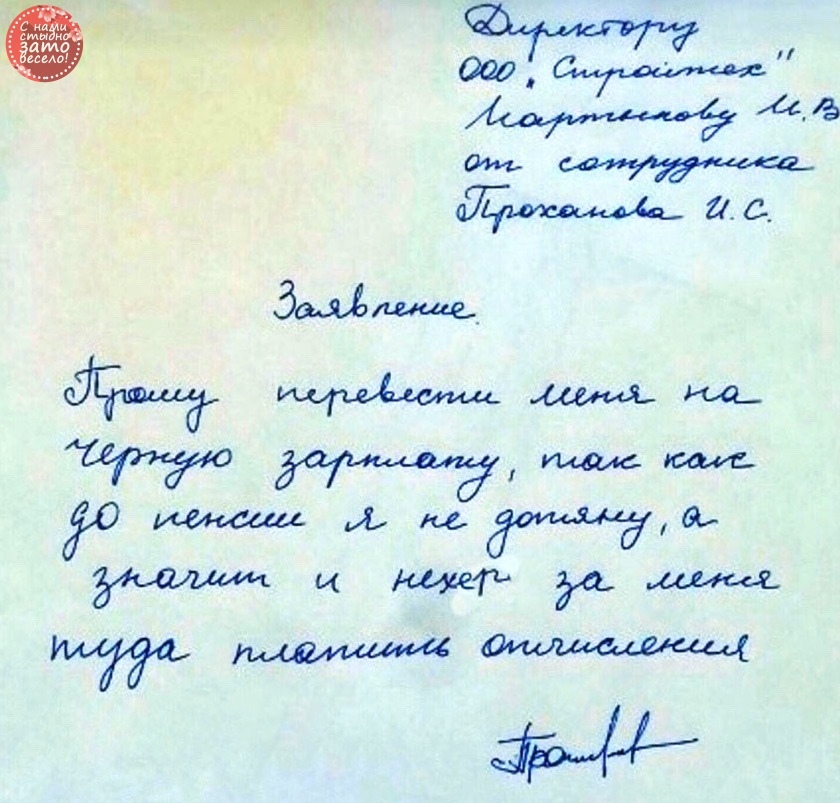 С нами
стыдно
зато
весело!
Директору
ООО „Строитех"
Мартынову И.В
от сотрудника
Проханова И.С.
Заявление.
Прошу перевести меня на
черную зарплату, так как
до пенсии я не дотяну, а
значит и нехер за меня
туда платить отчисления